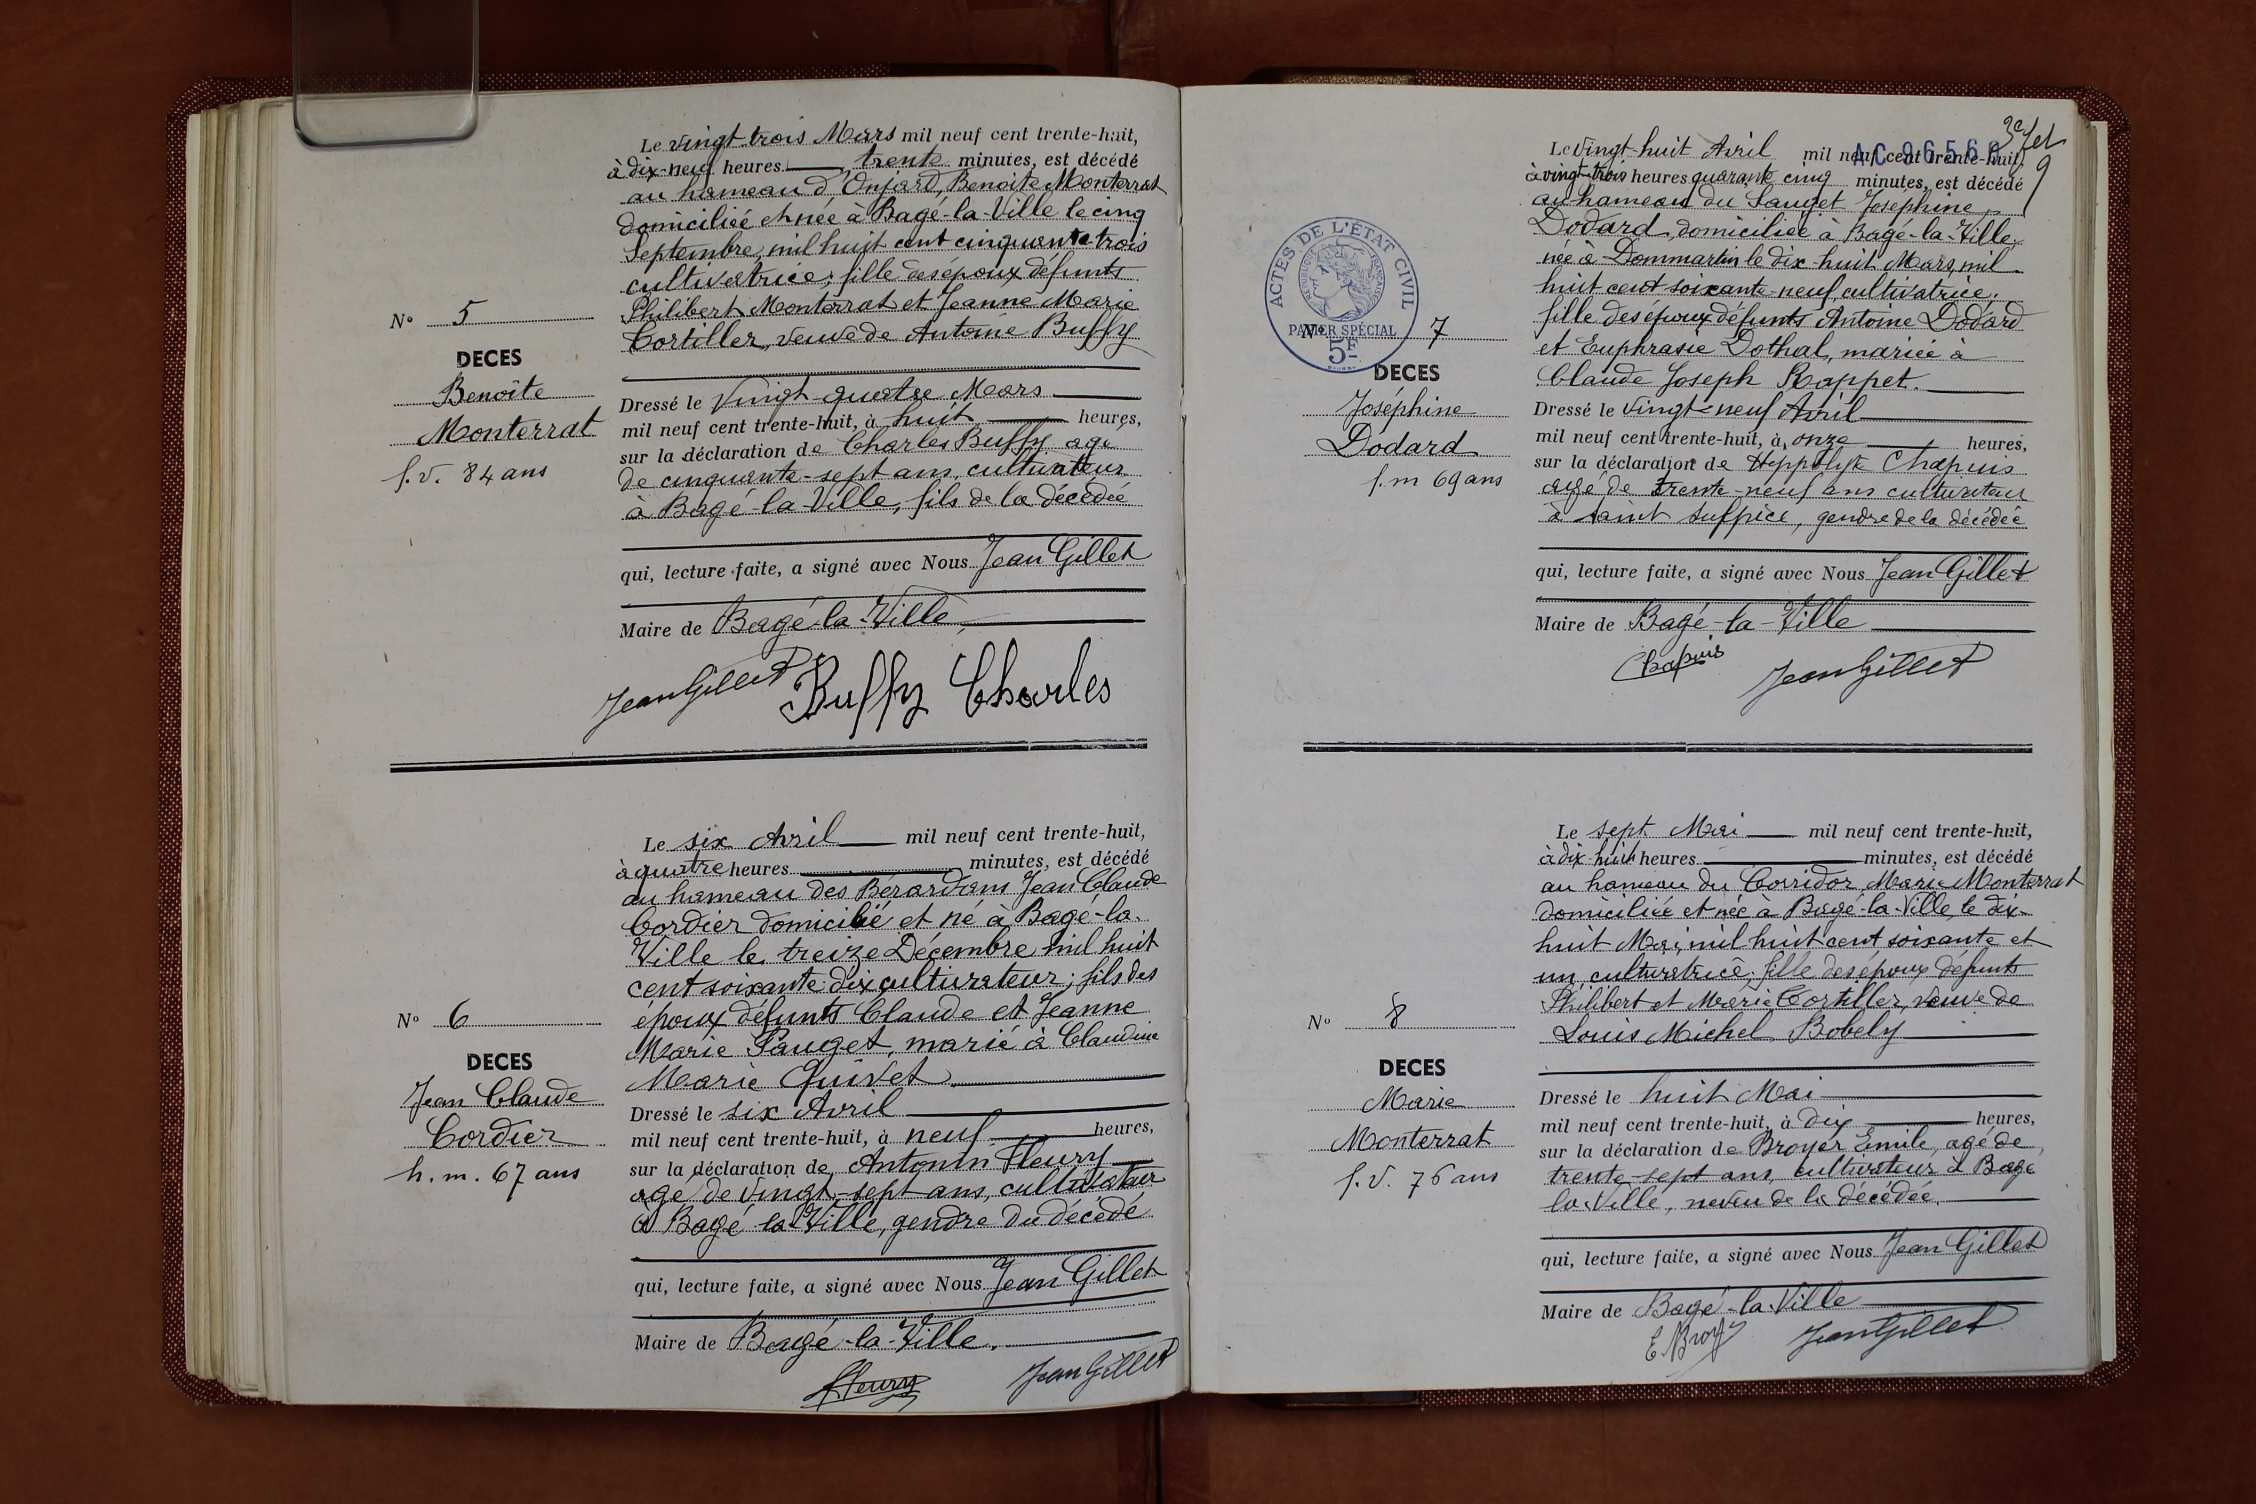 Le vingt trois Mars mil neuf cent trente-huit,
à dix-neuf heures trente minutes, est décédé
au hameau d'Onjard, Benoite Monterrat
domiciliée et née à Bagé-la-Ville le cinq
Septembre mil huit cent cinquante trois
cultivatrice; fille des époux défunts
Philibert Monterrat et Jeanne Marie
Cortiller, veuve de Antoine Buffy
N° 5
DECES
Benoite
Monterrat
f.v. 84 ans
Dressé le Vingt-quatre Mars
mil neuf cent trente-huit, à huit heures,
sur la déclaration de Charles Buffy age
de cinquante-sept ans, cultivateur
à Bagé-la-Ville, fils de la décédée
qui, lecture faite, a signé avec Nous Jean Gillet
Maire de Bagé-la-Ville,
Jean Gillet Buffy Charles
Le six Avril mil neuf cent trente-huit,
à quatre heures minutes, est décédé
au hameau des Berardans Jean Claude
Cordier domicilié et né à Bagé-la-
Ville le treize Décembre mil huit
cent soixante dix cultivateur; fils des
époux défunts Claude et Jeanne
Marie Pauget, marié à Claudine
Marie Quivet
N° 6
DECES
Jean Claude
Cordier
h.m. 67 ans
Dressé le six Avril
mil neuf cent trente-huit, à neuf heures,
sur la déclaration de Antonin Fleury
age de vingt-sept ans, cultivateur
à Bagé la Ville, gendre du décédé
qui, lecture faite, a signé avec Nous Jean Gillet
Maire de Bagé-la-Ville.
Fleury Jean Gillet
3e fet
9
AC 96568
Le Vingt-huit Avril mil neuf cent trente-huit,
à vingt-trois heures quarante cinq minutes, est décédé
au hameau du Sauget Joséphine
Dodard, domiciliée à Bagé-la-Ville,
née à Dommartin le dix-huit Mars mil
huit cent soixante-neuf cultivatrice,
fille des époux défunts Antoine Dodard
et Euphrasie Dothal, mariée à
Claude Joseph Rappet.
ACTES DE L'ÉTAT CIVIL
RÉPUBLIQUE FRANÇAISE
PAPIER SPÉCIAL
5F
N° 7
DECES
Joséphine
Dodard
f.m 69 ans
Dressé le Vingt-neuf Avril
mil neuf cent trente-huit, à onze heures,
sur la déclaration de Hippolyte Chapuis
agé de trente-neuf ans cultivateur
à Saint Sulpice, gendre de la décédée
qui, lecture faite, a signé avec Nous Jean Gillet
Maire de Bagé-la-Ville
Chapuis Jean Gillet
Le sept Mai mil neuf cent trente-huit,
à dix-huit heures minutes, est décédé
au hameau du Corridor, Marie Monterrat
domiciliée et née à Bagé-la-Ville, le dix-
huit Mai mil huit cent soixante et
un, cultivatrice, fille des époux défunts
Philibert et Marie Cortiller, veuve de
Louis Michel Bobely
N° 8
DECES
Marie
Monterrat
f.v. 76 ans
Dressé le huit Mai
mil neuf cent trente-huit, à dix heures,
sur la déclaration de Broyer Emile, agé de
trente-sept ans, cultivateur à Bagé
la Ville, neveu de la décédée.
qui, lecture faite, a signé avec Nous Jean Gillet
Maire de Bagé-la-Ville
E. Broy Jean Gillet